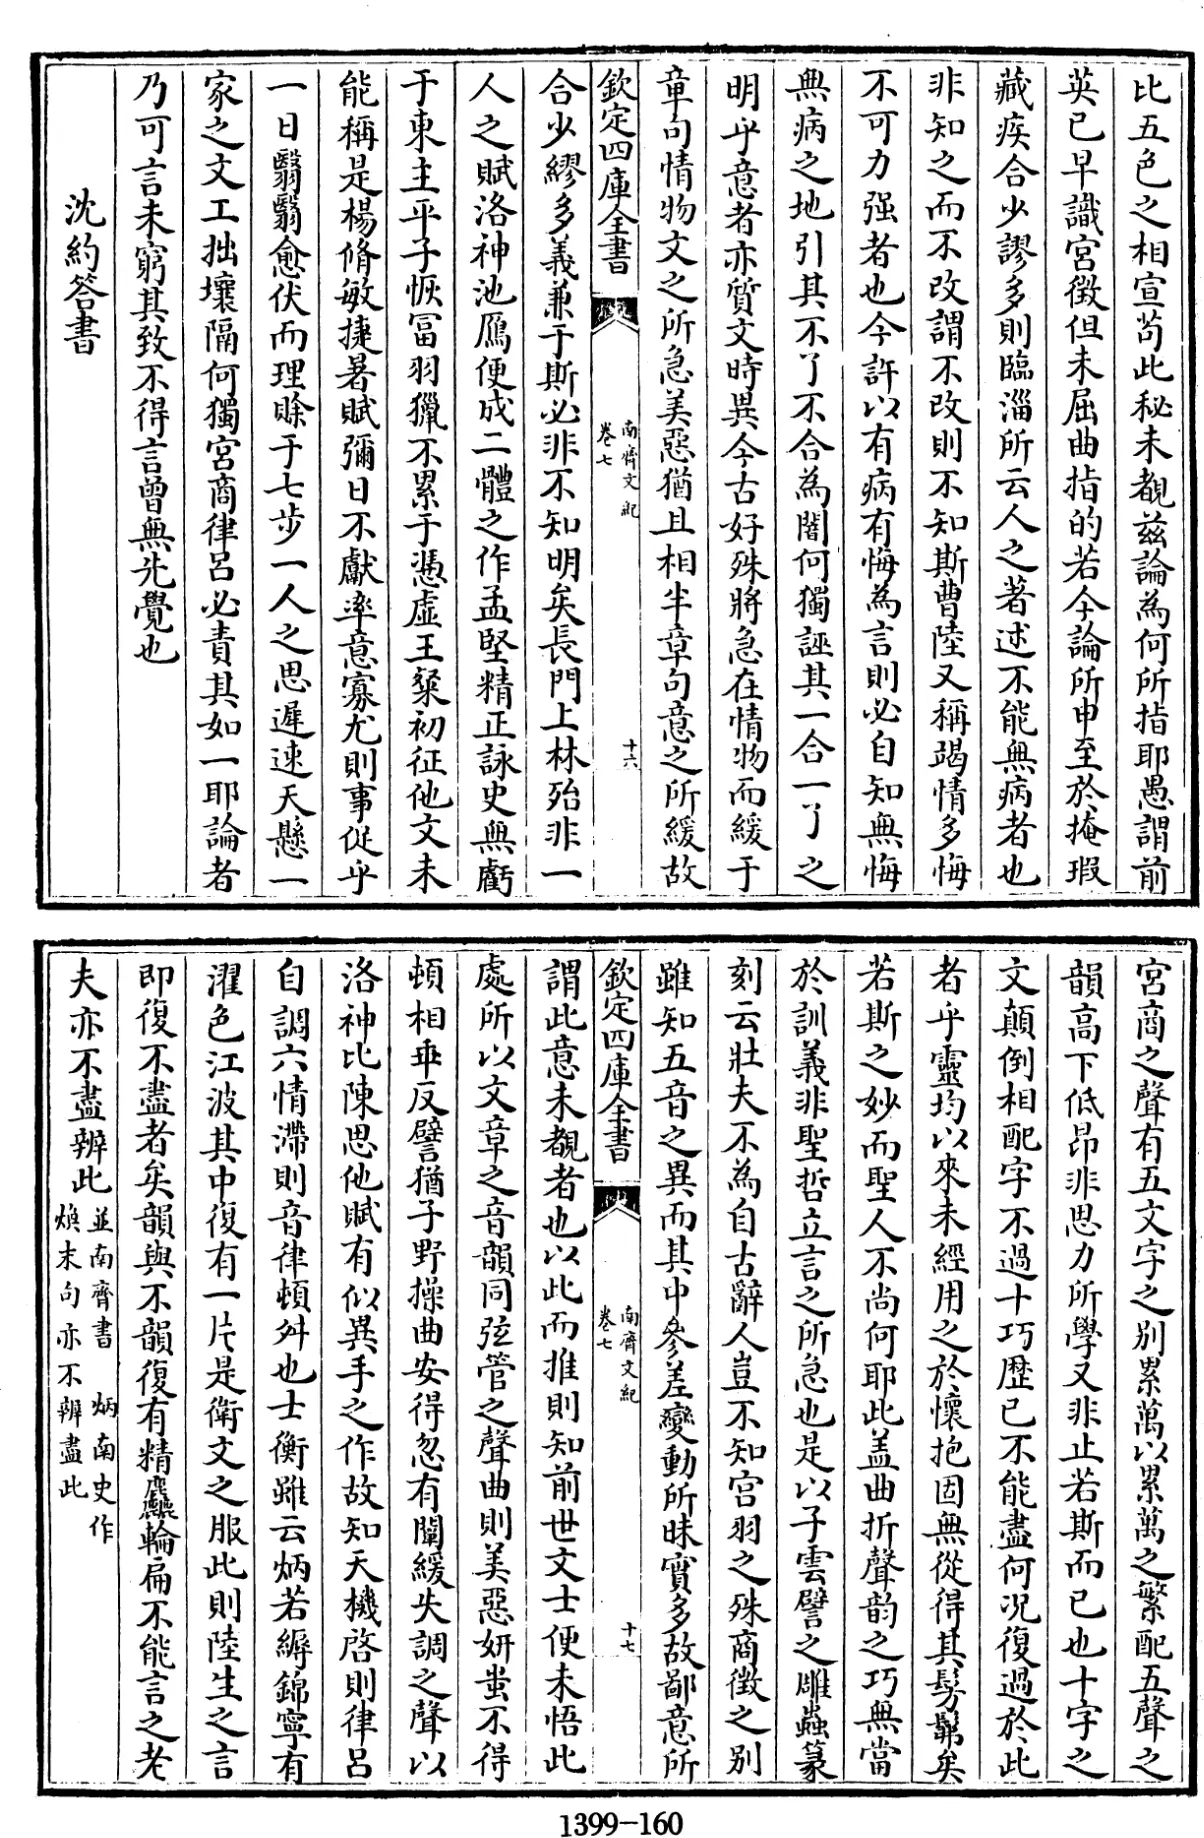 比五色之相宣苟此秘未覩兹論為何所指耶愚謂前
英已早識宮徵但未屈曲指的若今論所申至於掩瑕
藏疾合少謬多則臨淄所云人之著述不能無病者也
非知之而不改謂不改則不知斯曹陸又稱竭情多悔
不可力强者也今許以有病有悔為言則必自知無悔
無病之地引其不了不合為闇何獨誣其一合一了之
明乎意者亦質文時異今古好殊將急在情物而緩于
章句情物文之所急美惡猶且相半章句意之所緩故
欽定四庫全書
南齊文紀
卷七
十六
合少繆多義兼于斯必非不知明矣長門上林殆非一
人之賦洛神池鴈便成二體之作孟堅精正詠史無虧
于東主平子恢富羽獵不累于憑虛王粲初征他文未
能稱是楊脩敏捷暑賦彌日不獻率意寡尤則事促乎
一日翳翳愈伏而理賖于七步一人之思遲速天懸一
家之文工拙壤隔何獨宮商律呂必責其如一耶論者
乃可言未窮其致不得言曾無先覺也
沈約答書
宮商之聲有五文字之别累萬以累萬之繁配五聲之
韻高下低昂非思力所學又非止若斯而已也十字之
文顛倒相配字不過十巧歷已不能盡何况復過於此
者乎靈均以來未經用之於懷抱固無從得其髣髴矣
若斯之妙而聖人不尚何耶此蓋曲折聲韵之巧無當
於訓義非聖哲立言之所急也是以子雲譬之雕蟲篆
刻云壯夫不為自古辭人豈不知宮羽之殊商徵之别
雖知五音之異而其中參差變動所昧實多故鄙意所
欽定四庫全書
南齊文紀
卷七
十七
謂此意未覩者也以此而推則知前世文士便未悟此
處所以文章之音韻同弦管之聲曲則美惡妍蚩不得
頓相乖反譬猶子野操曲安得忽有闡緩失調之聲以
洛神比陳思他賦有似異手之作故知天機啓則律呂
自調六情滯則音律頓舛也士衡雖云炳若縟錦寧有
濯色江波其中復有一片是衛文之服此則陸生之言
即復不盡者矣韻與不韻復有精麤輪扁不能言之老
夫亦不盡辨此並南齊書 炳南史作
煥末句亦不辨盡此
1399-160